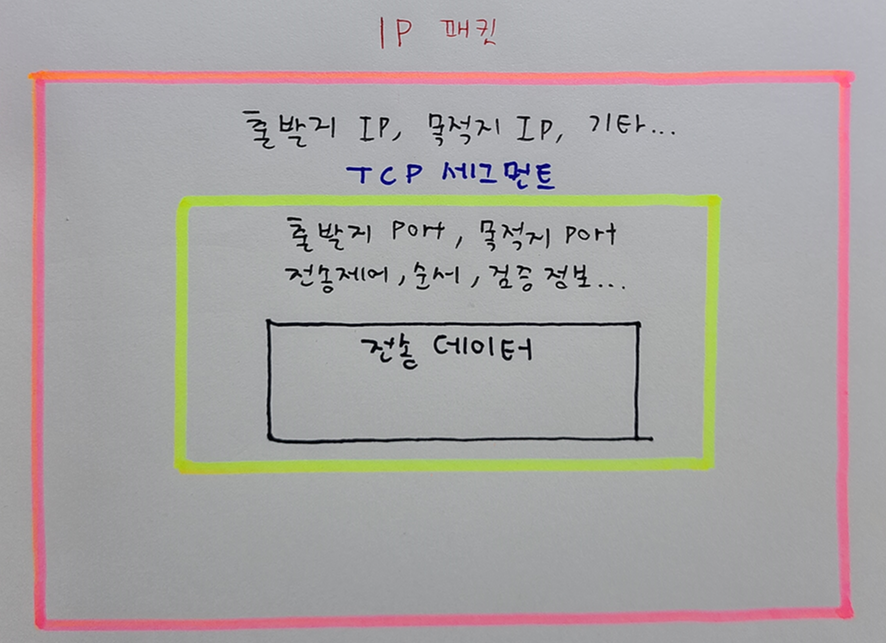 IP 패킷
출발지 IP, 목적지 IP, 기타...
TCP 세그먼트
출발지 Port, 목적지 Port
전송제어, 순서, 검증 정보...
전송 데이터